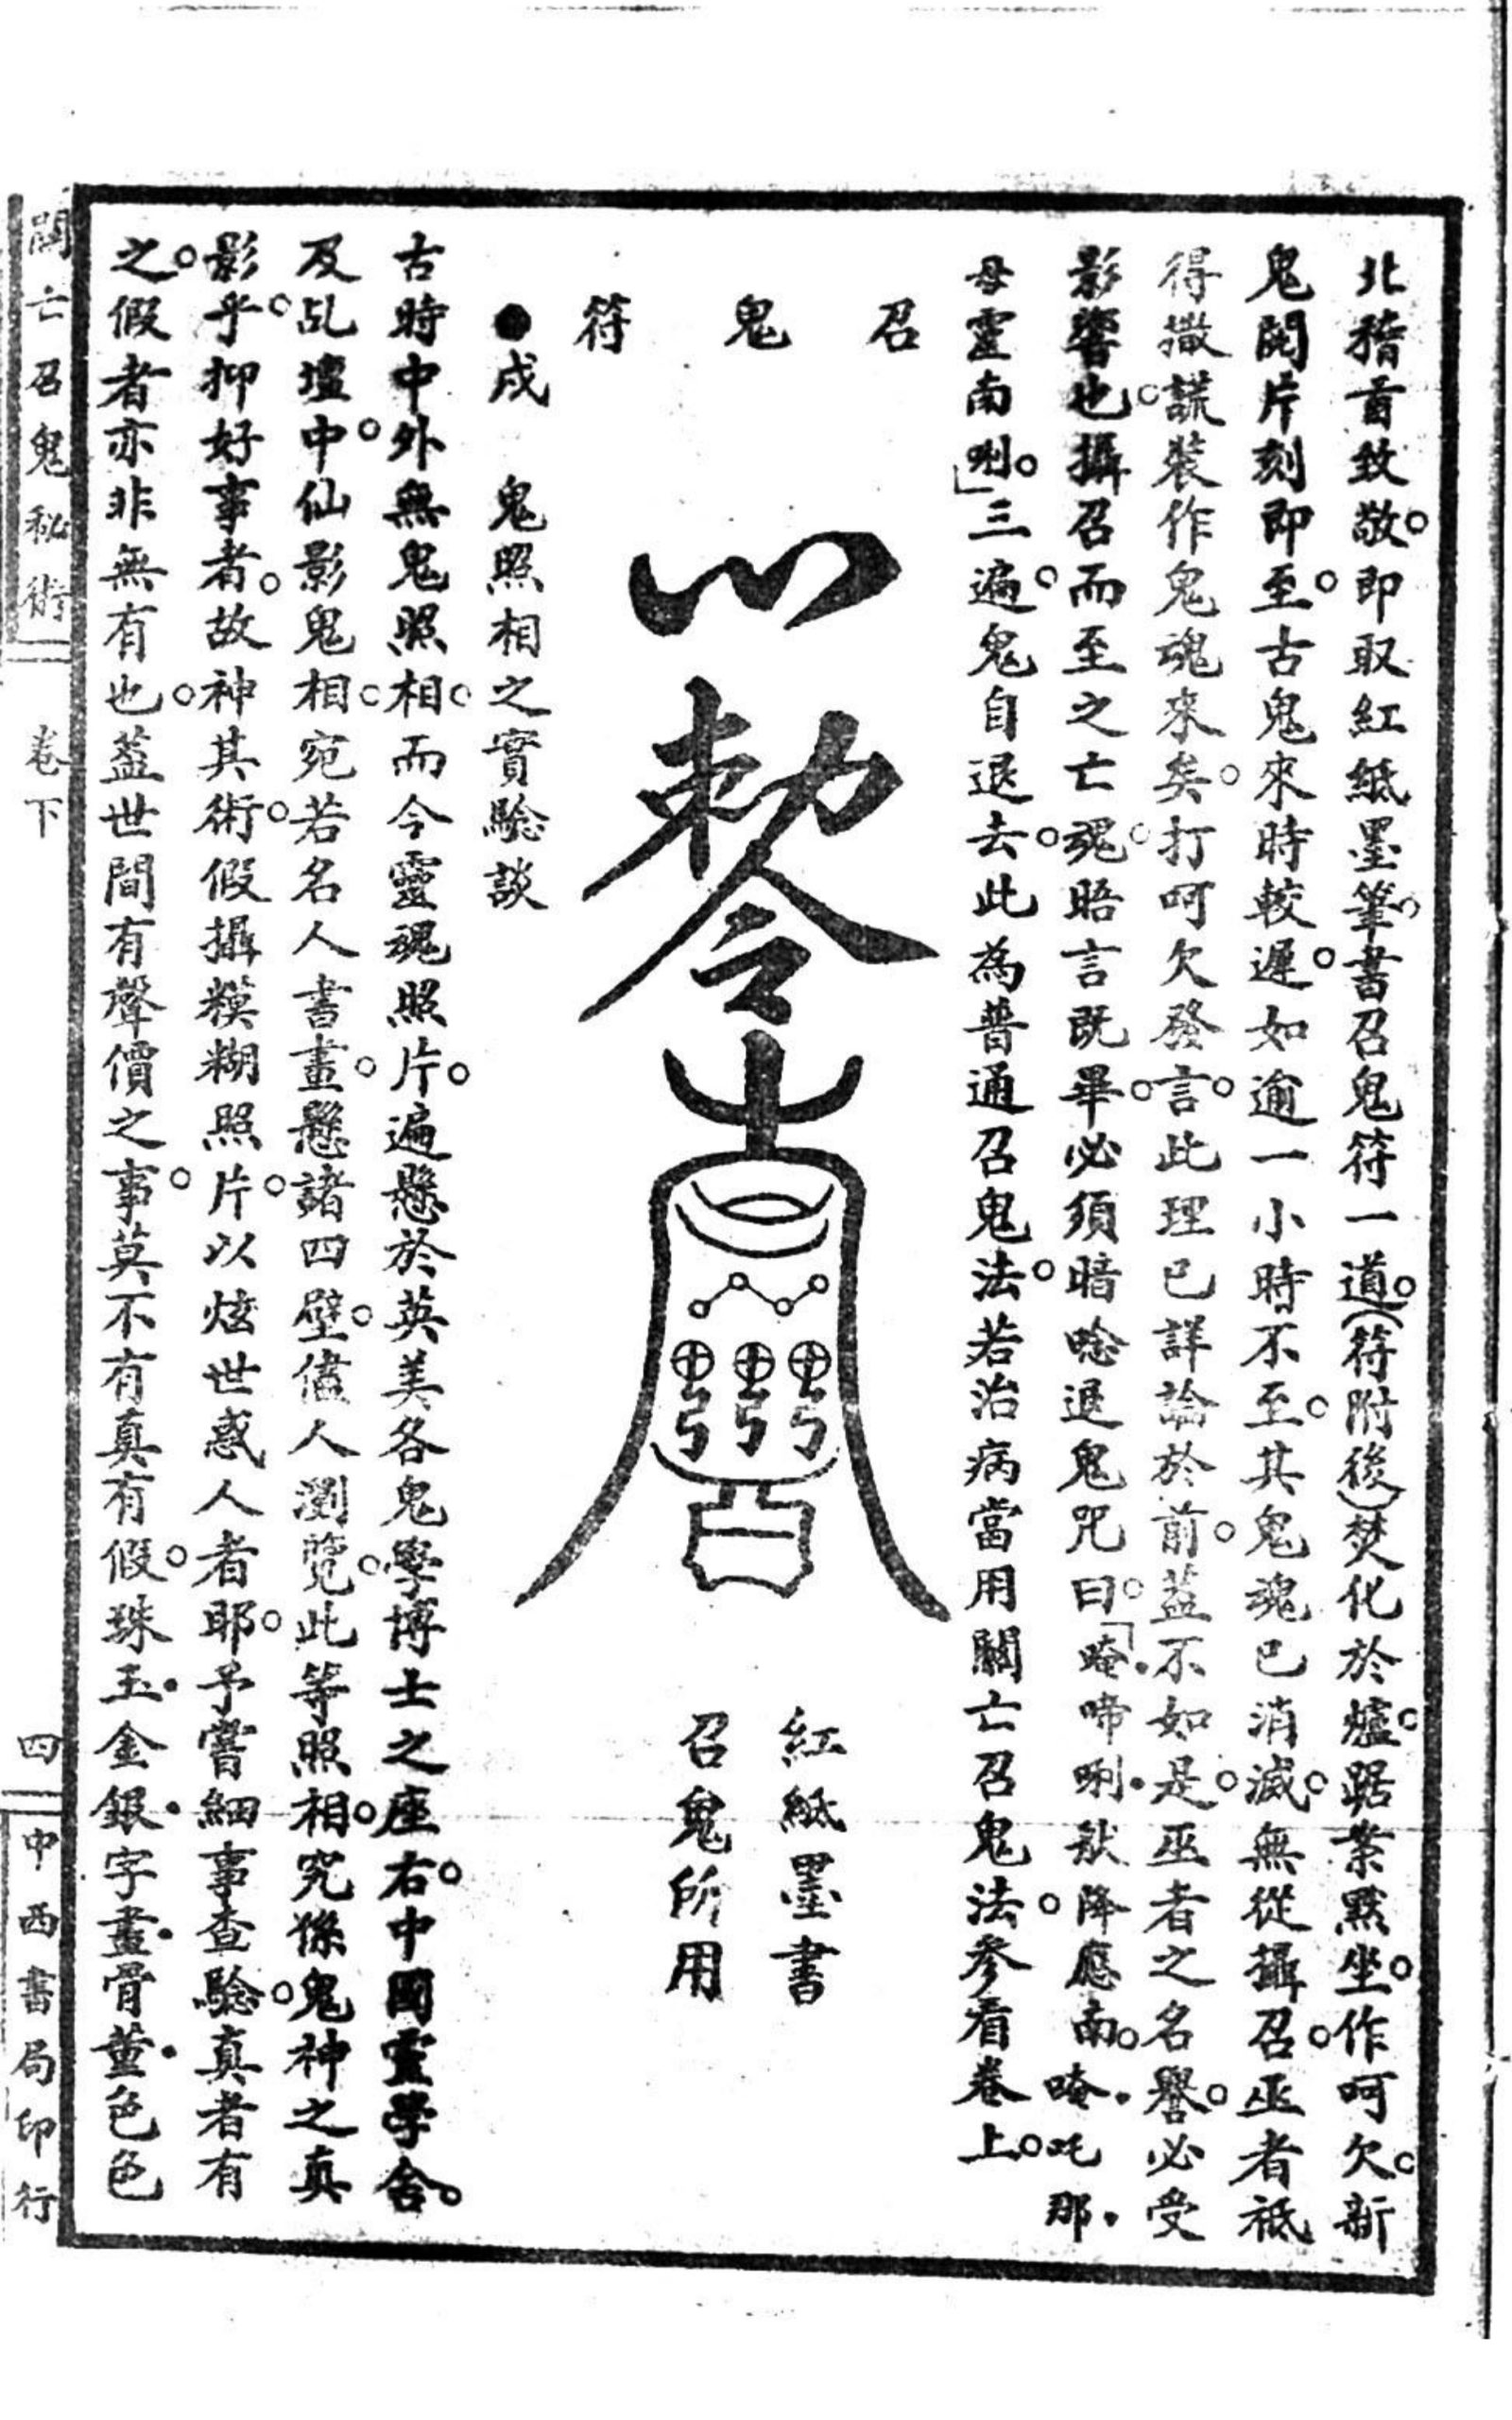 北稽首致敬。即取紅紙墨筆。書召鬼符一道。(符附後)焚化於爐。踞案默坐。作呵欠。新
鬼閱片刻即至。古鬼來時較遲。如逾一小時不至。其鬼魂已消滅。無從攝召。巫者祗
得撒謊裝作鬼魂來矣。打呵欠發言。此理已詳論於前。蓋不如是。巫者之名譽。必受
影響也。攝召而至之亡魂。晤言既畢。必須暗唸退鬼咒曰。「唵.啼唎.㹜降應南。唵.吒那.
母靈南唎。」三遍。鬼自退去。此為普通召鬼法。若治病當用關亡召鬼法。參看卷上。
召鬼符
敕令
紅紙墨書
召鬼所用
●戌　鬼照相之實驗談
古時中外無鬼照相。而今靈魂照片。遍懸於英美各鬼學博士之座右。中國靈學會。
及乩壇中。仙影鬼相。宛若名人書畫。懸諸四壁。儘人瀏覽。此等照相。究係鬼神之真
影乎。抑好事者。故神其術。假攝糢糊照片。以炫世惑人者耶。予嘗細事查驗。真者有
之。假者亦非無有也。蓋世間有聲價之事。莫不有真有假。珠玉.金銀.字畫.骨董.色色
關亡召鬼秘術　卷下　四　中西書局印行